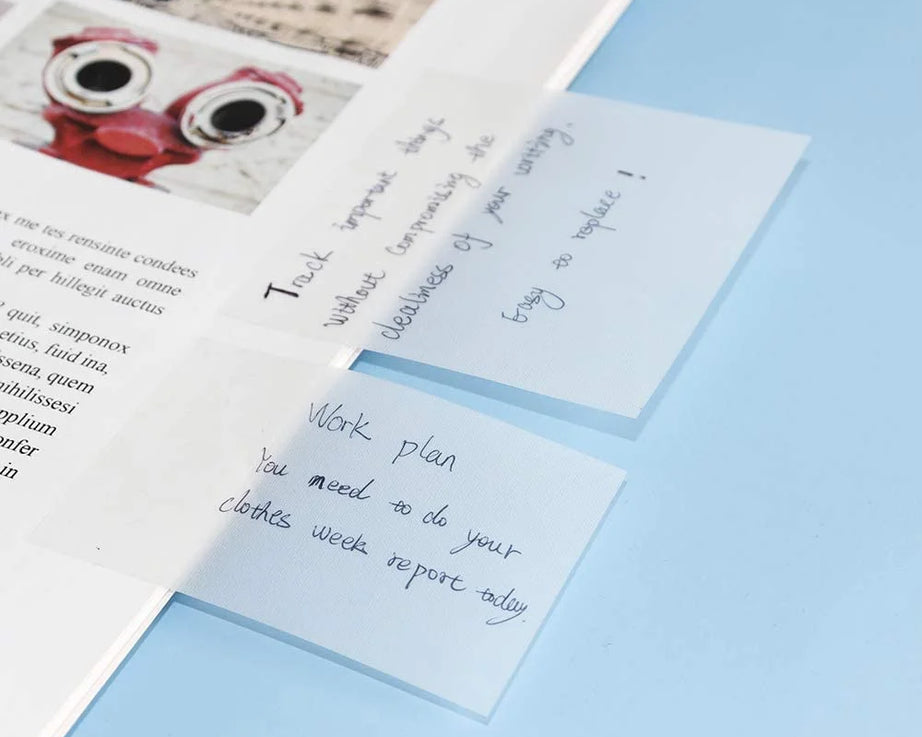 Track important things
without compromising the
clealiness of your writing.
Easy to replace!
Work plan
You need to do your
clothes week report today.
ox me tes rensinte condees
eroxime enam omne
bli per hillegit auctus
quit, simponox
etius, fuid ina,
ssena, quem
nihilissesi
pplium
onfer
in